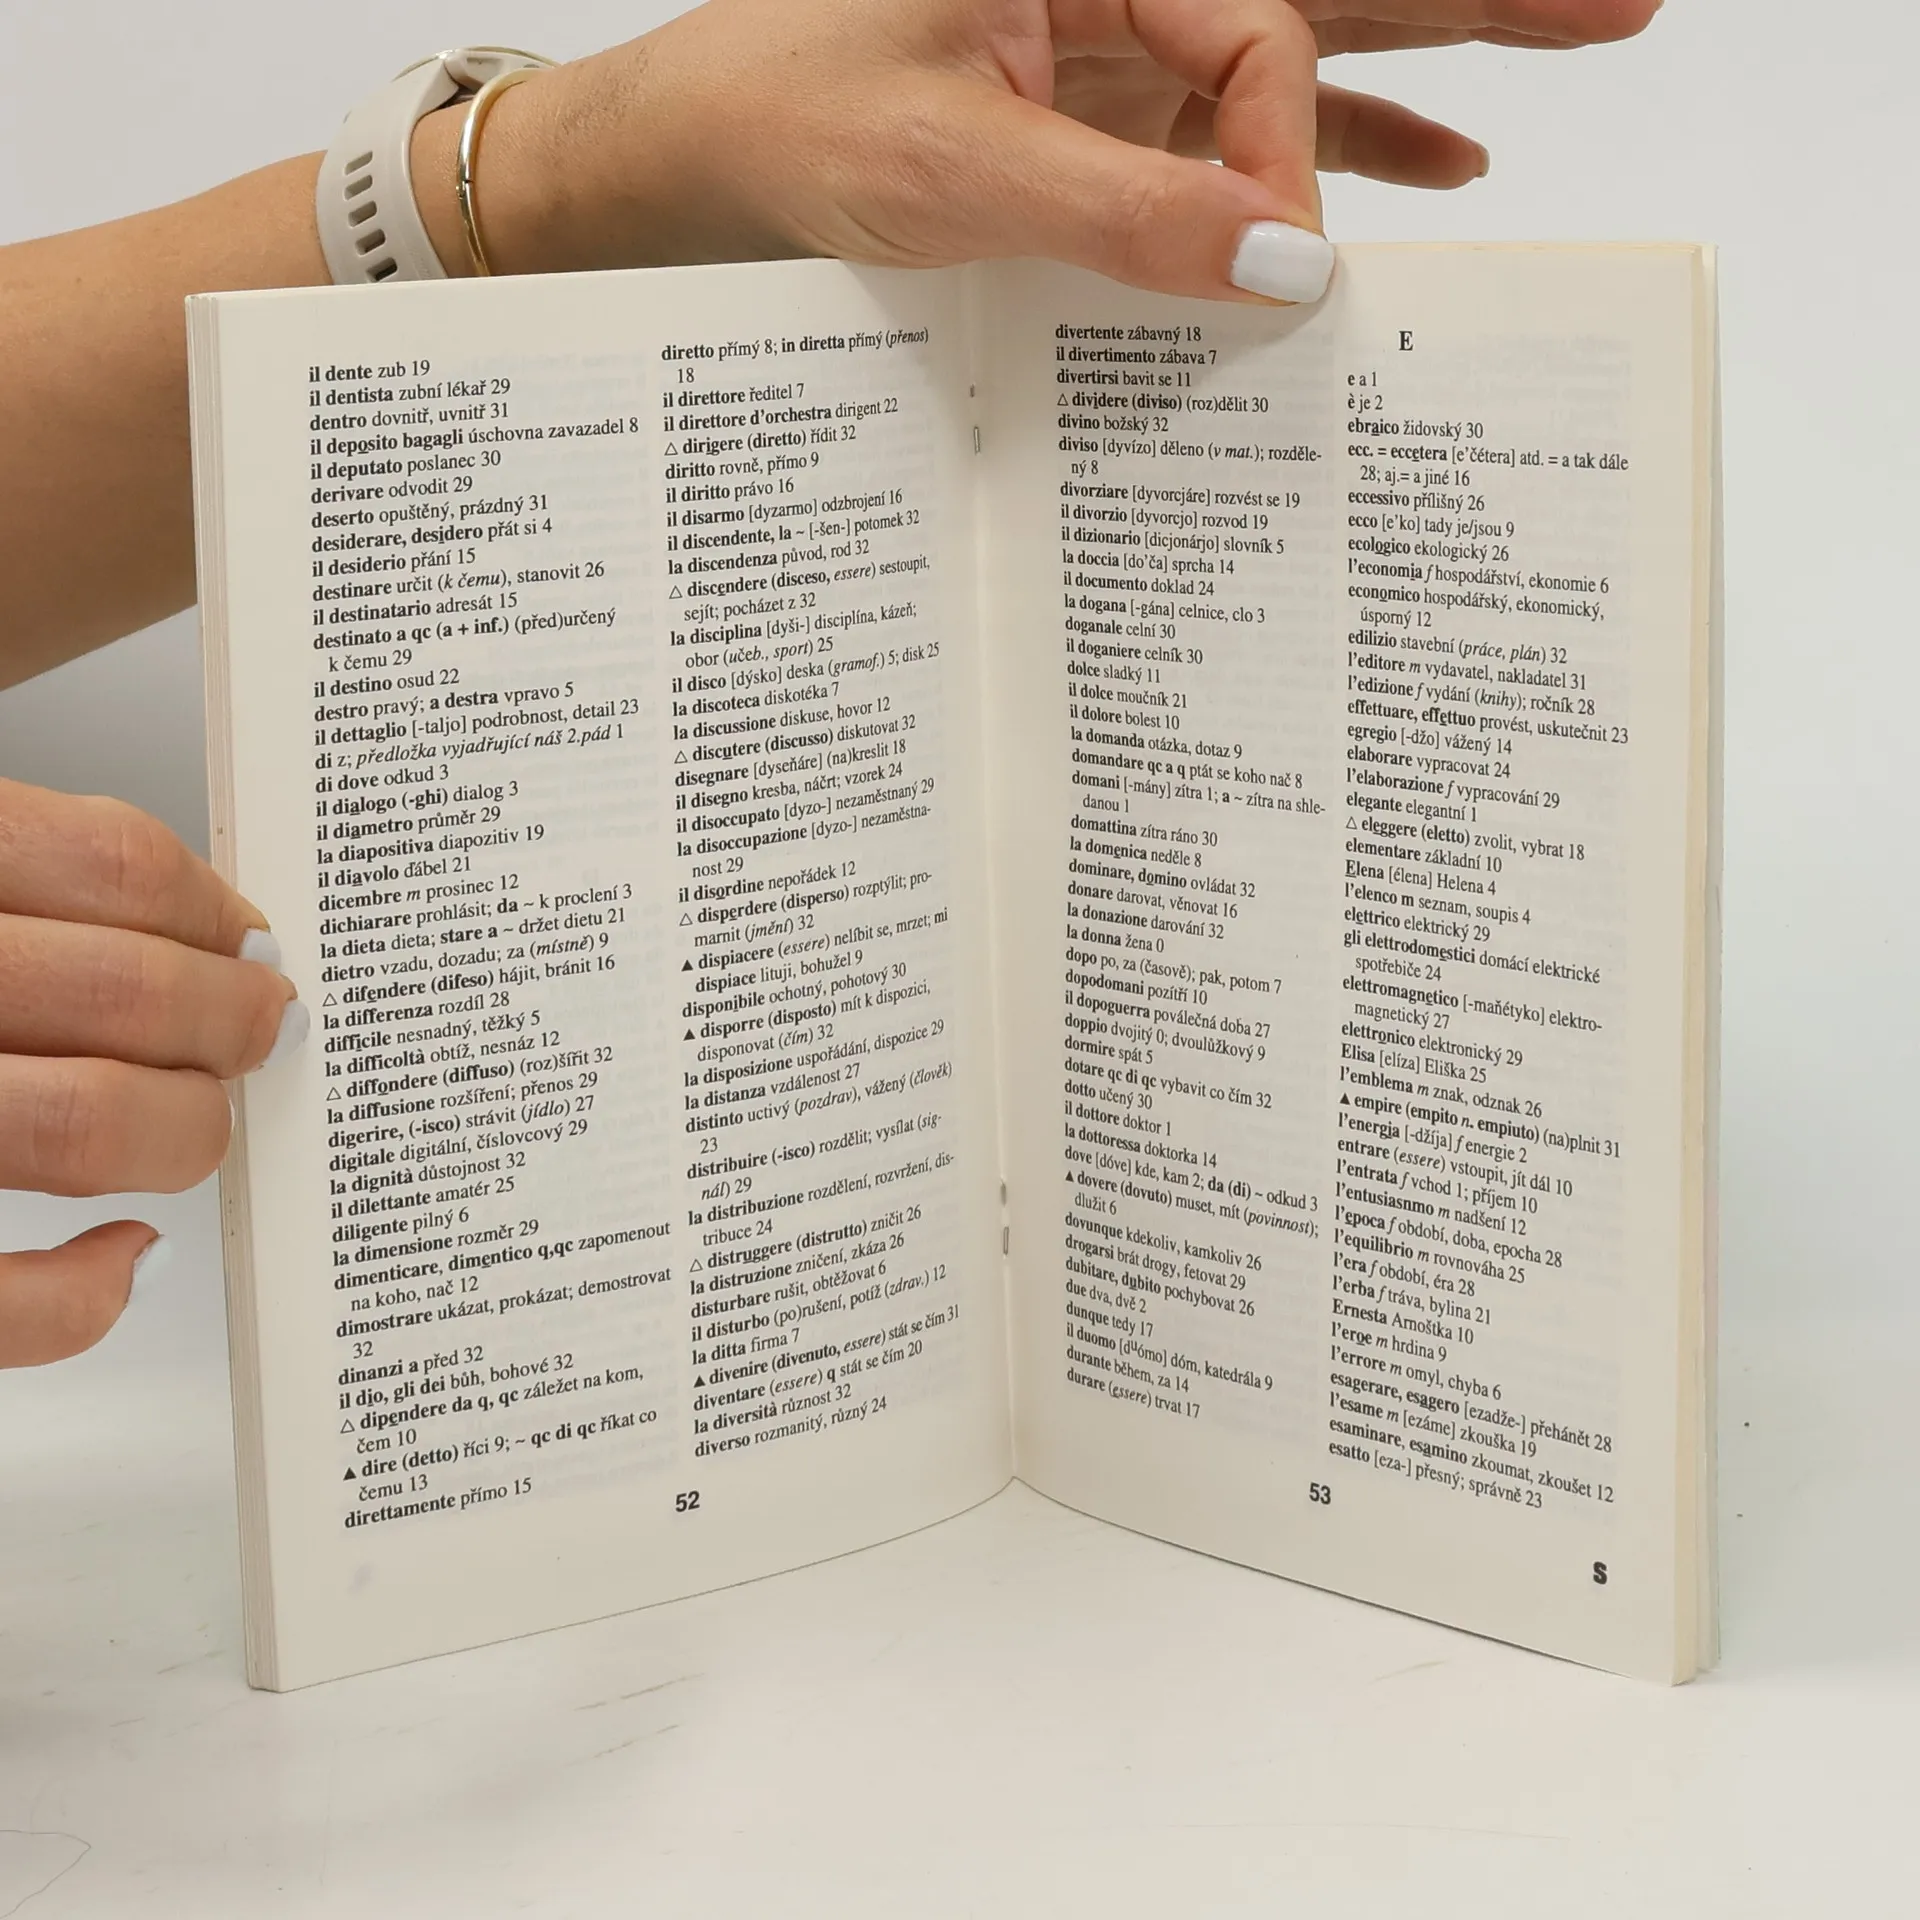 il dente zub 19
il dentista zubní lékař 29
dentro dovnitř, uvnitř 31
il deposito bagagli úschovna zavazadel 8
il deputato poslanec 30
derivare odvodit 29
deserto opuštěný, prázdný 31
desiderare, desidero přát si 4
il desiderio přání 15
destinare určit (k čemu), stanovit 26
il destinatario adresát 15
destinato a qc (a + inf.) (před)určený
k čemu 29
il destino osud 22
destro pravý; a destra vpravo 5
il dettaglio [-taljo] podrobnost, detail 23
di z; předložka vyjadřující náš 2.pád 1
di dove odkud 3
il dialogo (-ghi) dialog 3
il diametro průměr 29
la diapositiva diapozitiv 19
il diavolo ďábel 21
dicembre m prosinec 12
dichiarare prohlásit; da ~ k proclení 3
la dieta dieta; stare a ~ držet dietu 21
dietro vzadu, dozadu; za (místně) 9
△ difendere (difeso) hájit, bránit 16
la differenza rozdíl 28
difficile nesnadný, těžký 5
la difficoltà obtíž, nesnáz 12
△ diffondere (diffuso) (roz)šířit 32
la diffusione rozšíření; přenos 29
digerire, (-isco) strávit (jídlo) 27
digitale digitální, číslovcový 29
la dignità důstojnost 32
il dilettante amatér 25
diligente pilný 6
la dimensione rozměr 29
dimenticare, dimentico q,qc zapomenout
na koho, nač 12
dimostrare ukázat, prokázat; demostrovat
32
dinanzi a před 32
il dio, gli dei bůh, bohové 32
△ dipendere da q, qc záležet na kom,
čem 10
▲ dire (detto) říci 9; ~ qc di qc říkat co
čemu 13
direttamente přímo 15
diretto přímý 8; in diretta přímý (přenos)
18
il direttore ředitel 7
il direttore d'orchestra dirigent 22
△ dirigere (diretto) řídit 32
diritto rovně, přímo 9
il diritto právo 16
il disarmo [dyzarmo] odzbrojení 16
il discendente, la ~ [-šen-] potomek 32
la discendenza původ, rod 32
△ discendere (disceso, essere) sestoupit,
sejít; pocházet z 32
la disciplina [dyši-] disciplína, kázeň;
obor (učeb., sport) 25
il disco [dýsko] deska (gramof.) 5; disk 25
la discoteca diskotéka 7
la discussione diskuse, hovor 12
△ discutere (discusso) diskutovat 32
disegnare [dyseňáre] (na)kreslit 18
il disegno kresba, náčrt; vzorek 24
il disoccupato [dyzo-] nezaměstnaný 29
la disoccupazione [dyzo-] nezaměstna-
nost 29
il disordine nepořádek 12
△ disperdere (disperso) rozptýlit; pro-
marnit (jmění) 32
▲ dispiacere (essere) nelíbit se, mrzet; mi
dispiace lituji, bohužel 9
disponibile ochotný, pohotový 30
▲ disporre (disposto) mít k dispozici,
disponovat (čím) 32
la disposizione uspořádání, dispozice 29
la distanza vzdálenost 27
distinto uctivý (pozdrav), vážený (člověk)
23
distribuire (-isco) rozdělit; vysílat (sig-
nál) 29
la distribuzione rozdělení, rozvržení, dis-
tribuce 24
△ distruggere (distrutto) zničit 26
la distruzione zničení, zkáza 26
disturbare rušit, obtěžovat 6
il disturbo (po)rušení, potíž (zdrav.) 12
la ditta firma 7
▲ divenire (divenuto, essere) stát se čím 31
diventare (essere) q stát se čím 20
la diversità různost 32
diverso rozmanitý, různý 24
52
divertente zábavný 18
il divertimento zábava 7
divertirsi bavit se 11
△ dividere (diviso) (roz)dělit 30
divino božský 32
diviso [dyvízo] děleno (v mat.); rozděle-
ný 8
divorziare [dyvorcjáre] rozvést se 19
il divorzio [dyvorcjo] rozvod 19
il dizionario [dicjonárjo] slovník 5
la doccia [do'ča] sprcha 14
il documento doklad 24
la dogana [-gána] celnice, clo 3
doganale celní 30
il doganiere celník 30
dolce sladký 11
il dolce moučník 21
il dolore bolest 10
la domanda otázka, dotaz 9
domandare qc a q ptát se koho nač 8
domani [-mány] zítra 1; a ~ zítra na shle-
danou 1
domattina zítra ráno 30
la domenica neděle 8
dominare, domino ovládat 32
donare darovat, věnovat 16
la donazione darování 32
la donna žena 0
dopo po, za (časově); pak, potom 7
dopodomani pozítří 10
il dopoguerra poválečná doba 27
doppio dvojitý 0; dvoulůžkový 9
dormire spát 5
dotare qc di qc vybavit co čím 32
dotto učený 30
il dottore doktor 1
la dottoressa doktorka 14
dove [dóve] kde, kam 2; da (di) ~ odkud 3
▲ dovere (dovuto) muset, mít (povinnost);
dlužit 6
dovunque kdekoliv, kamkoliv 26
drogarsi brát drogy, fetovat 29
dubitare, dubito pochybovat 26
due dva, dvě 2
dunque tedy 17
il duomo [dᵘómo] dóm, katedrála 9
durante během, za 14
durare (essere) trvat 17
E
e a 1
è je 2
ebraico židovský 30
ecc. = eccetera [e'čétera] atd. = a tak dále
28; aj.= a jiné 16
eccessivo přílišný 26
ecco [e'ko] tady je/jsou 9
ecologico ekologický 26
l'economia f hospodářství, ekonomie 6
economico hospodářský, ekonomický,
úsporný 12
edilizio stavební (práce, plán) 32
l'editore m vydavatel, nakladatel 31
l'edizione f vydání (knihy); ročník 28
effettuare, effettuo provést, uskutečnit 23
egregio [-džo] vážený 14
elaborare vypracovat 24
l'elaborazione f vypracování 29
elegante elegantní 1
△ eleggere (eletto) zvolit, vybrat 18
elementare základní 10
Elena [élena] Helena 4
l'elenco m seznam, soupis 4
elettrico elektrický 29
gli elettrodomestici domácí elektrické
spotřebiče 24
elettromagnetico [-maňétyko] elektro-
magnetický 27
elettronico elektronický 29
Elisa [elíza] Eliška 25
l'emblema m znak, odznak 26
▲ empire (empito n. empiuto) (na)plnit 31
l'energia [-džíja] f energie 2
entrare (essere) vstoupit, jít dál 10
l'entrata f vchod 1; příjem 10
l'entusiasnmo m nadšení 12
l'epoca f období, doba, epocha 28
l'equilibrio m rovnováha 25
l'era f období, éra 28
l'erba f tráva, bylina 21
Ernesta Arnoštka 10
l'eroe m hrdina 9
l'errore m omyl, chyba 6
esagerare, esagero [ezadže-] přehánět 28
l'esame m [ezáme] zkouška 19
esaminare, esamino zkoumat, zkoušet 12
esatto [eza-] přesný; správně 23
53
S